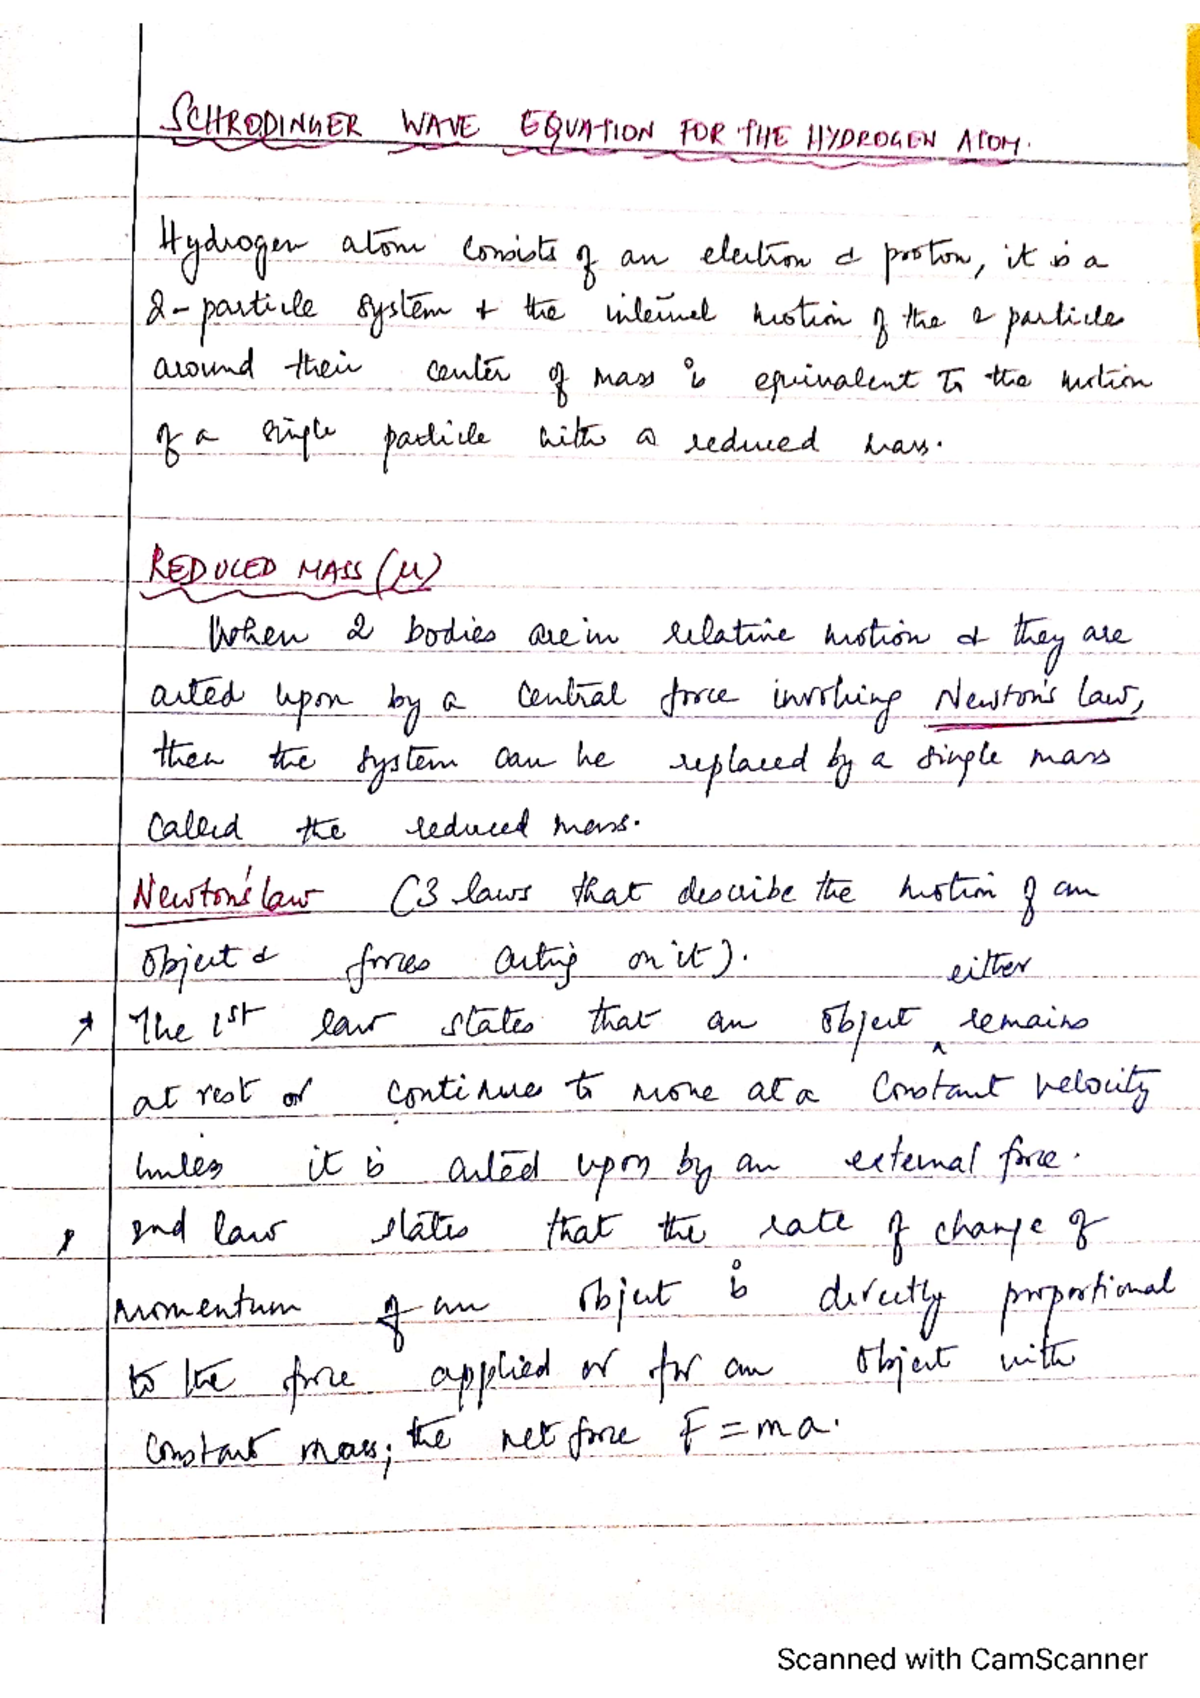 SCHRODINGER WAVE EQUATION FOR THE HYDROGEN ATOM.
Hydrogen atom consists of an electron & proton, it is a
2-particle system & the internal motion of the 2 particles
around their center of mass is equivalent to the motion
of a single particle with a reduced mass.
REDUCED MASS (μ)
When 2 bodies are in relative motion & they are
acted upon by a central force involving Newton's law,
then the system can be replaced by a single mass
called the reduced mass.
Newton's law (3 laws that describe the motion of an
object & forces acting on it).
either
The 1st law states that an object ^ remains
at rest or continues to move at a constant velocity
unless it is acted upon by an external force.
2nd law states that the rate of change of
momentum of an object is directly proportional
to the force applied or for an object with
constant mass; the net force F = ma.
Scanned with CamScanner